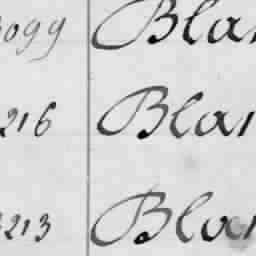 3099 Blan
3216 Blan
3213 Blan